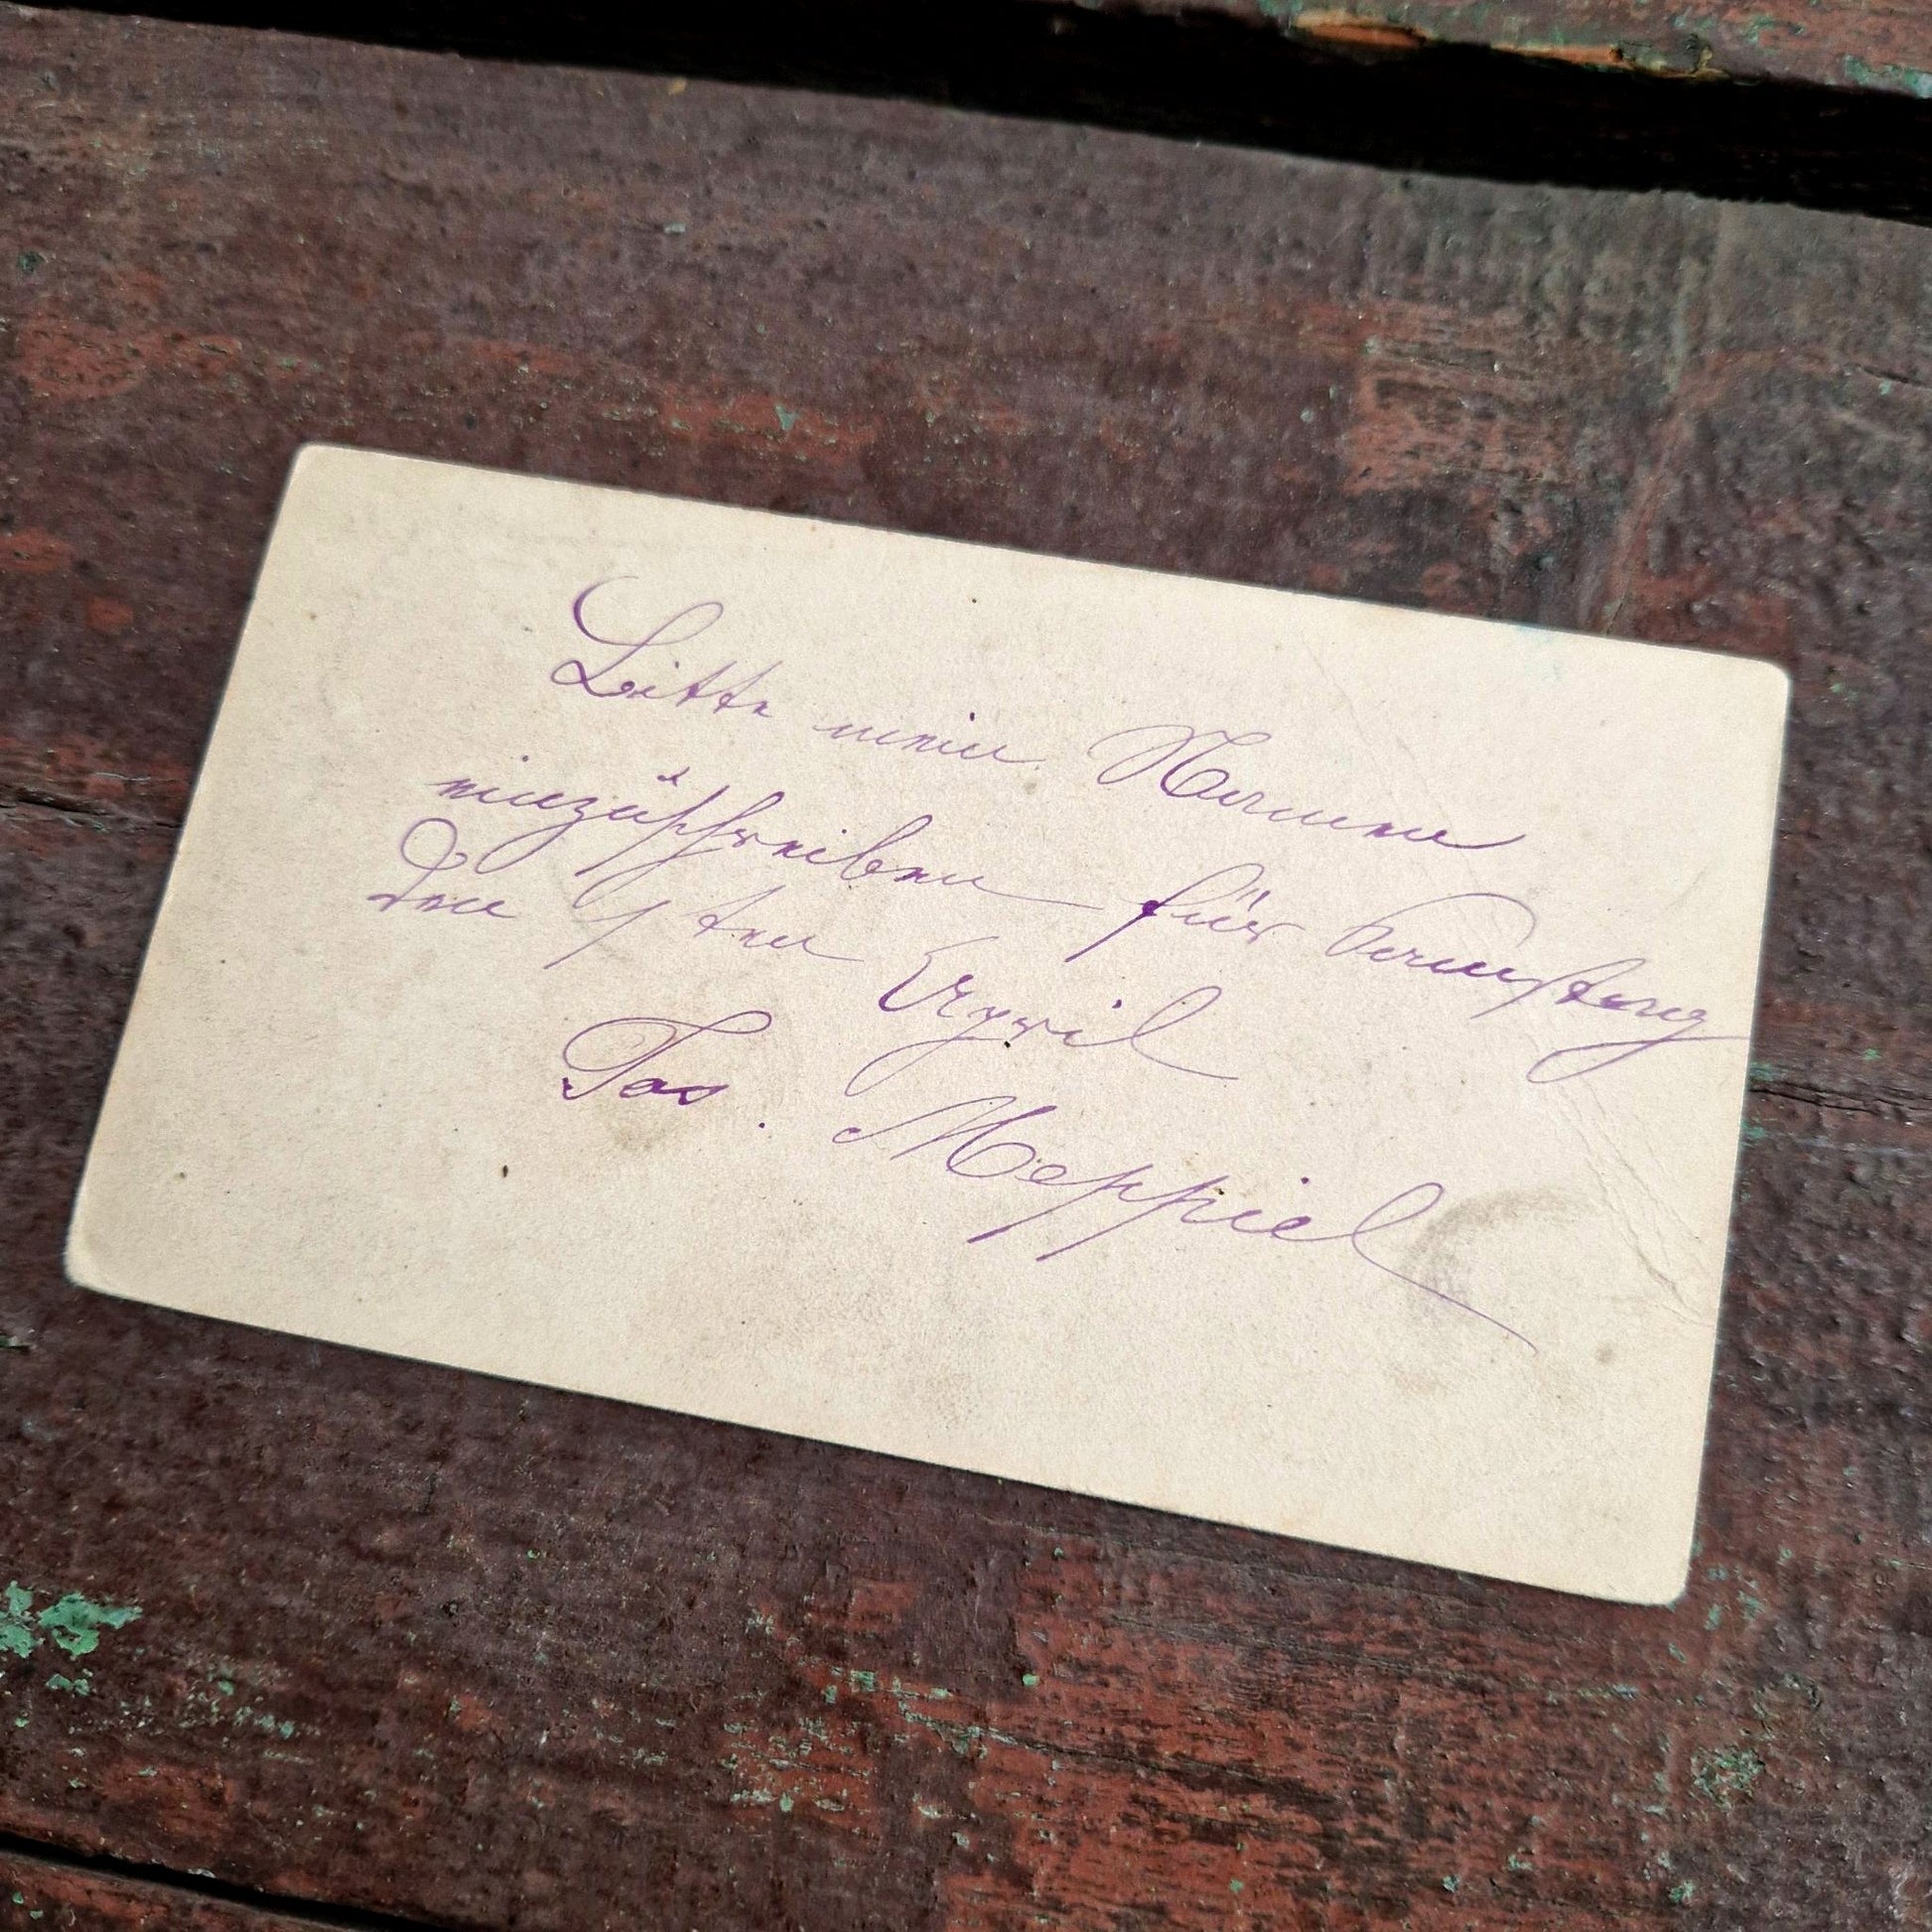 Bitte einen Namen
einzuschreiben für Samstag
den 9ten April
Jos. Meppiel